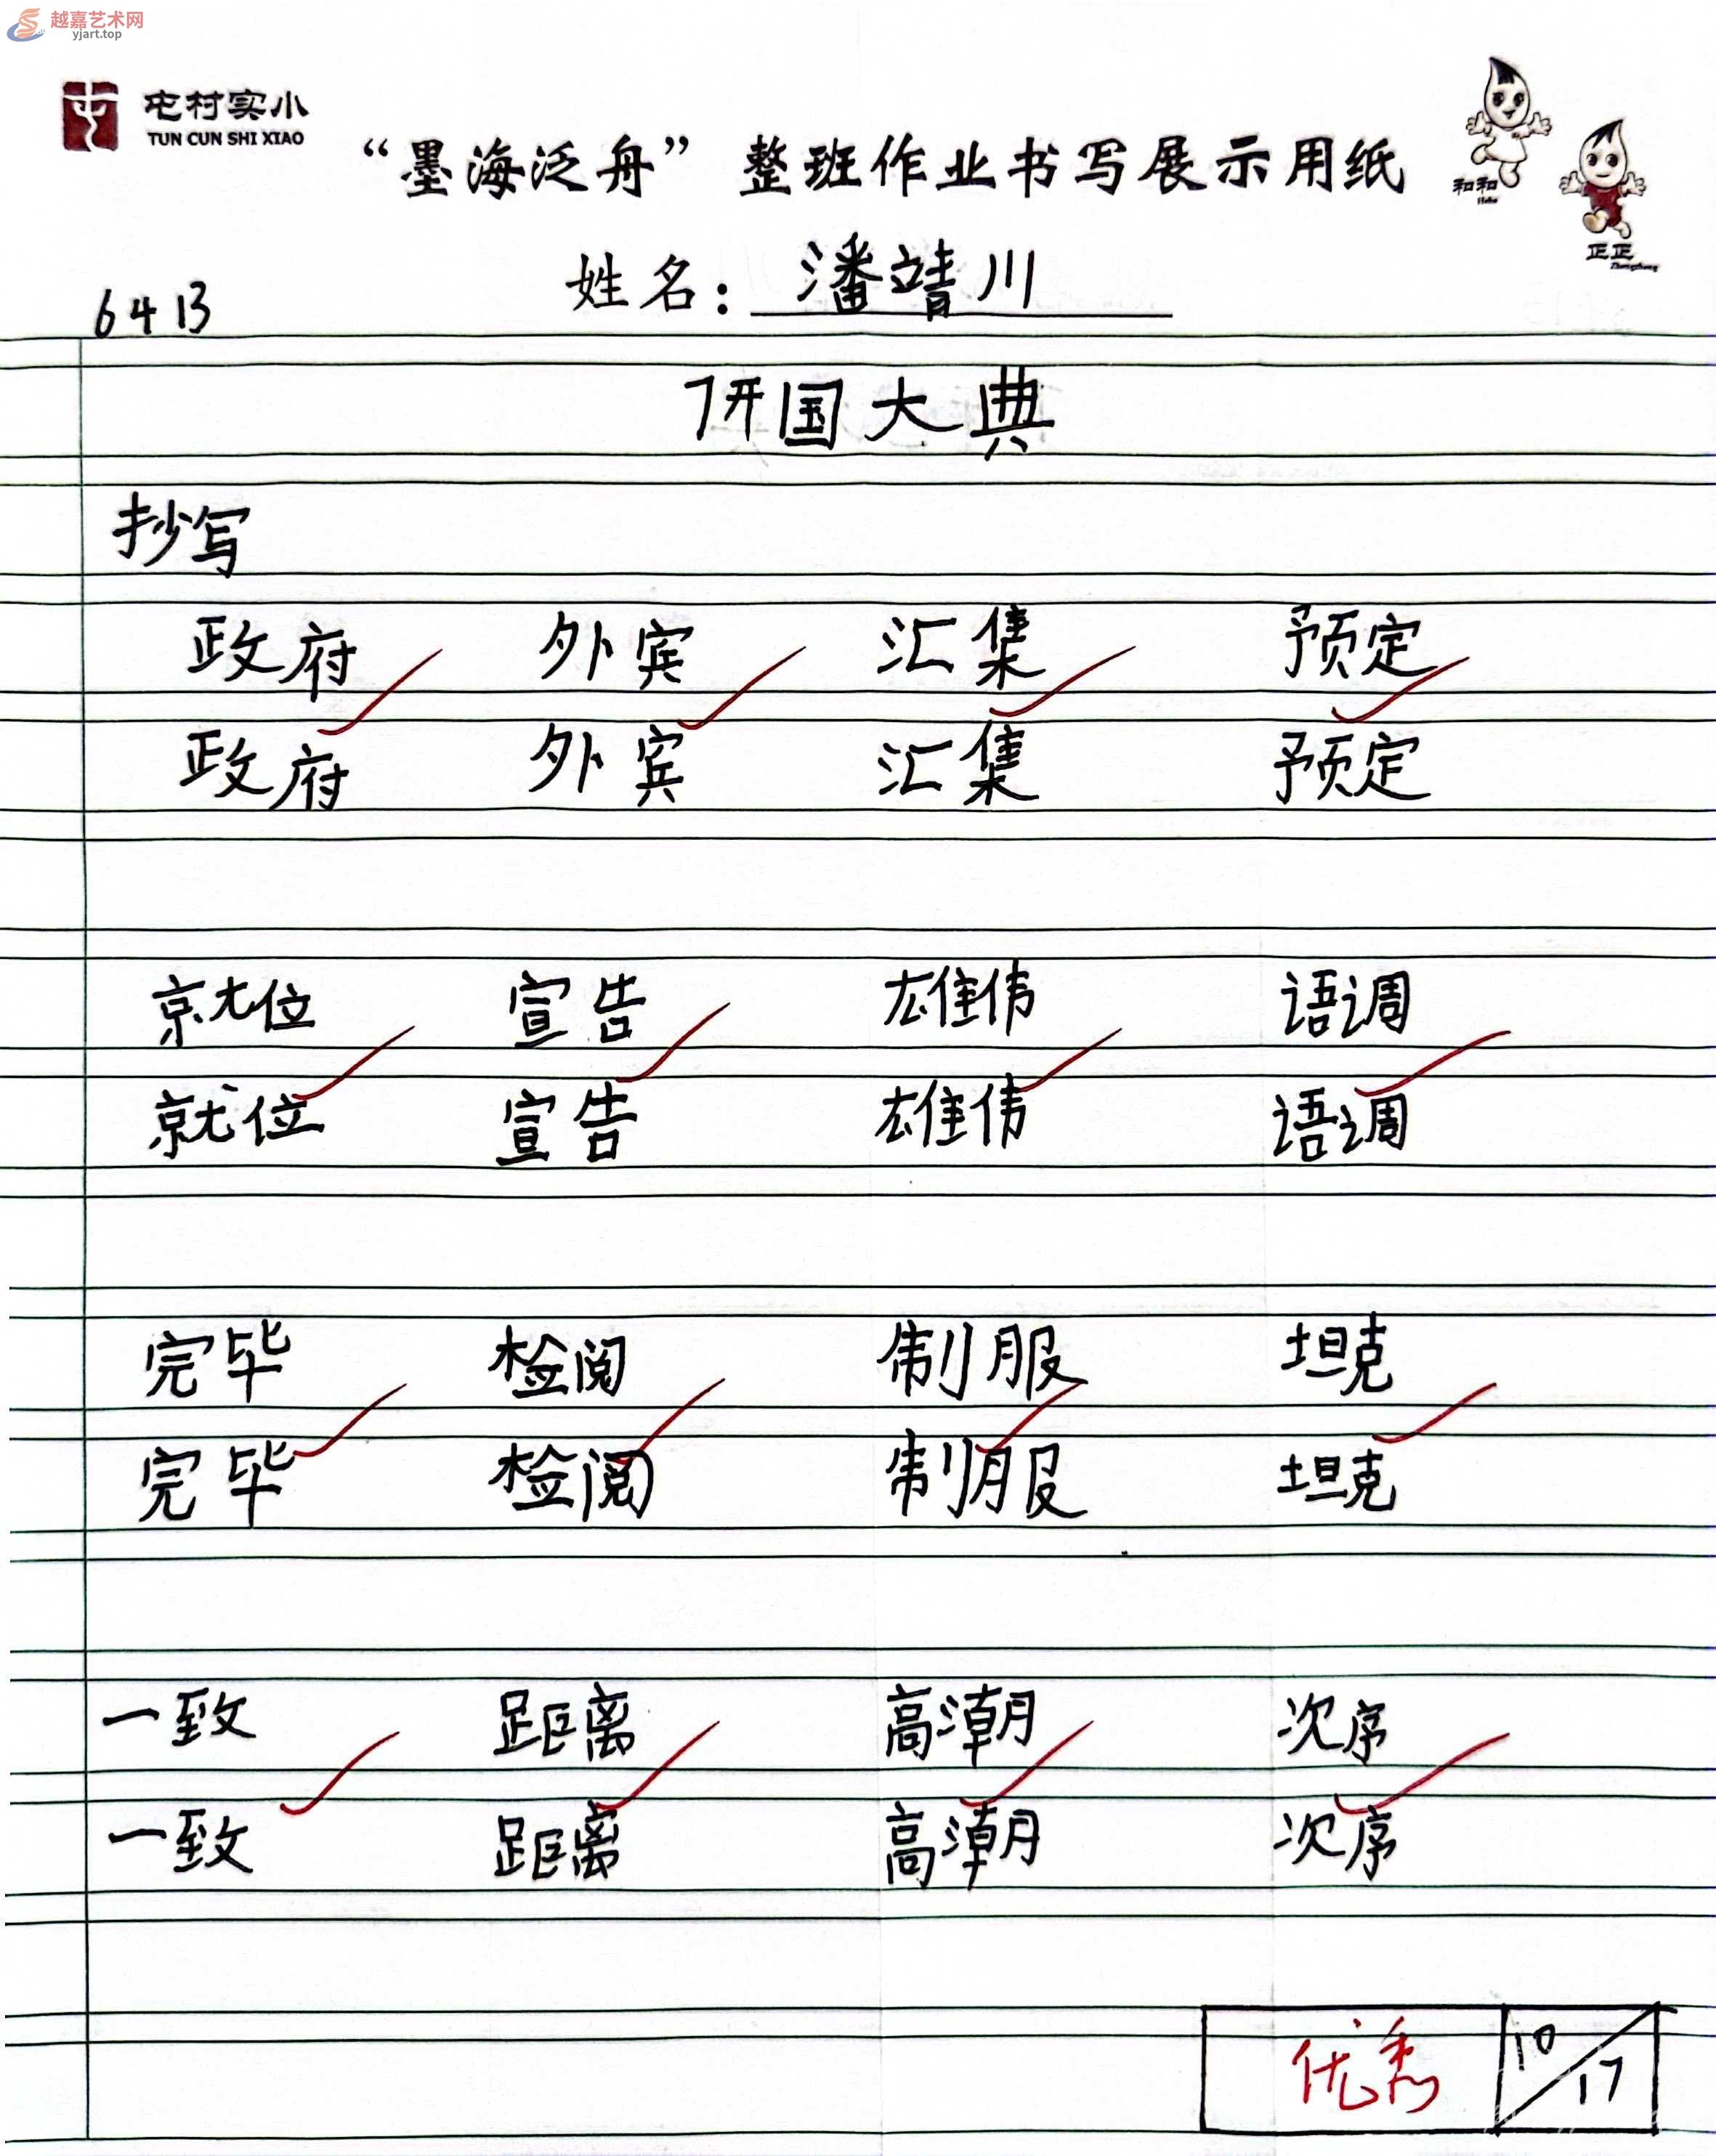 越嘉艺术网
yjart.top
屯村实小
TUN CUN SHI XIAO
“墨海泛舟”整班作业书写展示用纸
和和
Hehe
正正
Zhengzheng
姓名：潘靖川
6413
开国大典
抄写
政府 外宾 汇集 预定
政府 外宾 汇集 预定
就位 宣告 雄伟 语调
就位 宣告 雄伟 语调
完毕 检阅 制服 坦克
完毕 检阅 制服 坦克
一致 距离 高潮 次序
一致 距离 高潮 次序
优秀 10/17